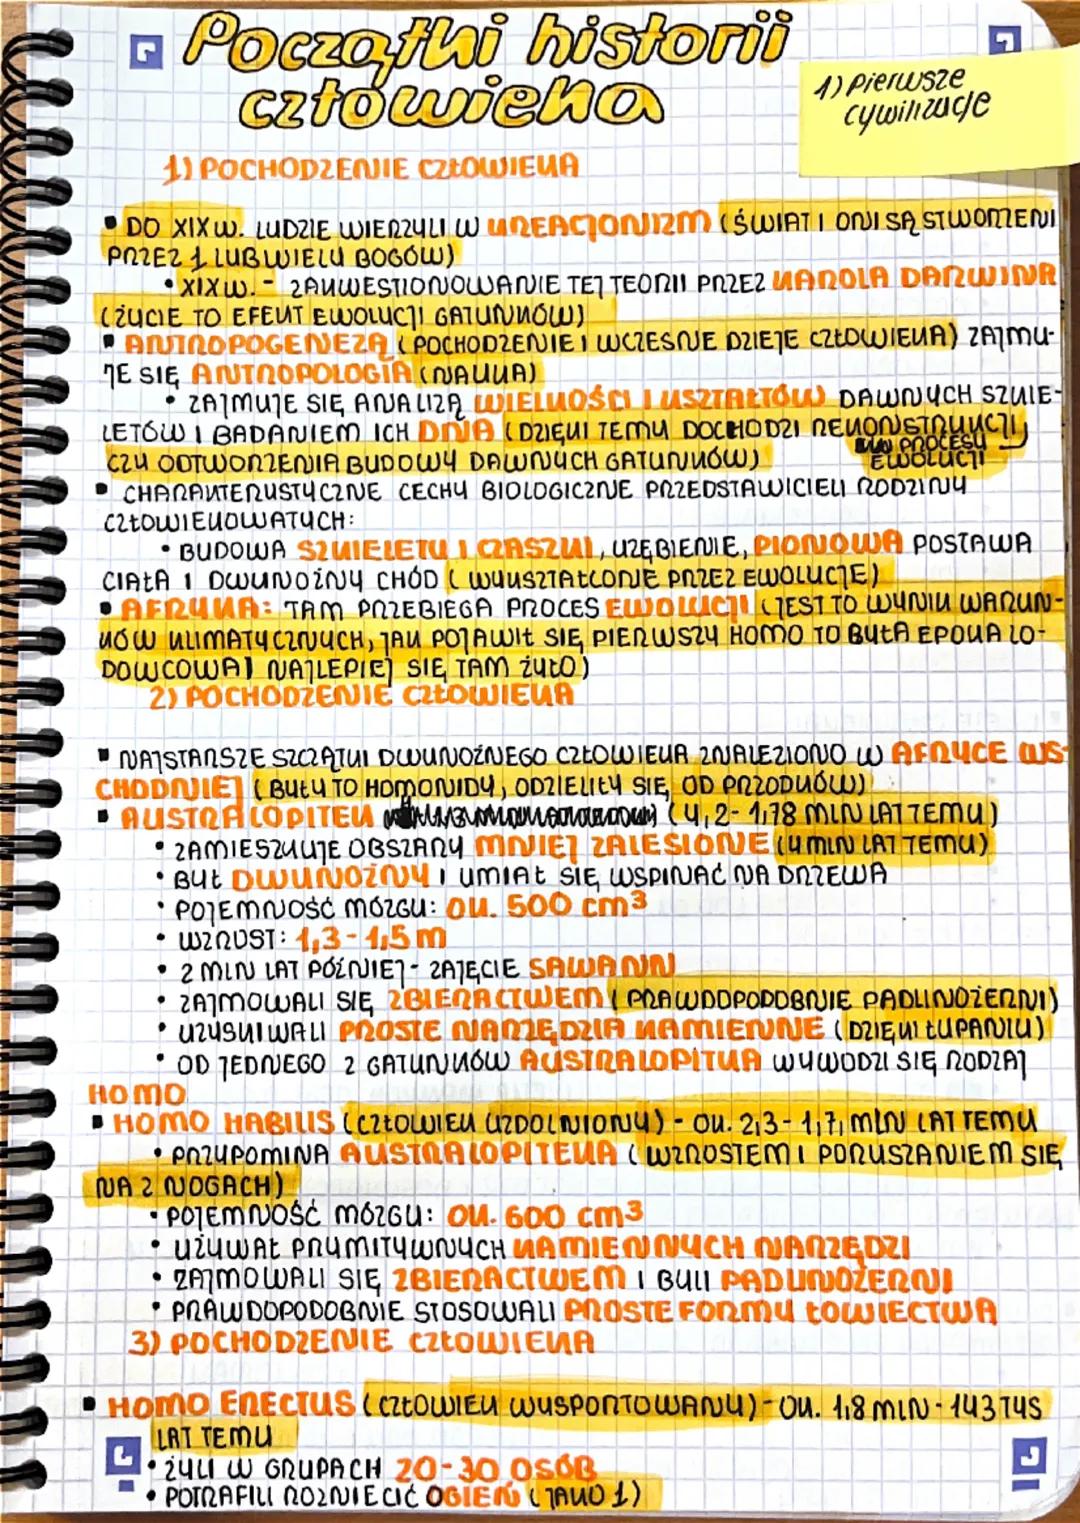 Początki historii
człowieka
1) Pierwsze
cywilizacje
1) POCHODZENIE CZŁOWIEKA
▪ DO XIX w. LUDZIE WIERZYLI W KREACJONIZM (ŚWIAT I ONI SĄ STWORZENI
PRZEZ 1 LUB WIELU BOGÓW)
• XIX w. - ZAKWESTIONOWANIE TEJ TEORII PRZEZ KAROLA DARWINA
(ŻYCIE TO EFEKT EWOLUCJI GATUNKÓW)
▪ ANTROPOGENEZĄ (POCHODZENIE I WCZESNE DZIEJE CZŁOWIEKA) ZAJMU-
JE SIĘ ANTROPOLOGIA (NAUKA)
• ZAJMUJE SIĘ ANALIZĄ WIELKOŚCI I KSZTAŁTÓW DAWNYCH SZKIE-
LETÓW I BADANIEM ICH DNA (DZIĘKI TEMU DOCHODZI REKONSTRUKCJI
CZY ODTWORZENIA BUDOWY DAWNYCH GATUNKÓW)
PROCESU
EWOLUCJI
▪ CHARAKTERYSTYCZNE CECHY BIOLOGICZNE PRZEDSTAWICIELI RODZINY
CZŁOWIEKOWATYCH:
• BUDOWA SZKIELETU I CZASZKI, UZĘBIENIE, PIONOWA POSTAWA
CIAŁA I DWUNOŻNY CHÓD (WYKSZTAŁCONE PRZEZ EWOLUCJE)
▪ AFRYKA: TAM PRZEBIEGA PROCES EWOLUCJI (JEST TO WYNIK WARUN-
KÓW KLIMATYCZNYCH, JAK POJAWIŁ SIĘ PIERWSZY HOMO TO BYŁA EPOKA LO-
DOWCOWA I NAJLEPIEJ SIĘ TAM ŻYŁO)
2) POCHODZENIE CZŁOWIEKA
▪ NAJSTARSZE SZCZĄTKI DWUNOŻNEGO CZŁOWIEKA ZNALEZIONO W AFRYCE WS-
CHODNIEJ (BYŁY TO HOMONIDY, ODZIELIŁY SIĘ OD PRZODKÓW)
▪ AUSTRALOPITEK (4,2-1,78 MLN LAT TEMU)
• ZAMIESZKUJE OBSZARY MNIEJ ZALESIONE (4 MLN LAT TEMU)
• BYŁ DWUNOŻNY I UMIAŁ SIĘ WSPINAĆ NA DRZEWA
• POJEMNOŚĆ MÓZGU: OK. 500 cm³
• WZROST: 1,3-1,5 m
• 2 MLN LAT PÓŹNIEJ - ZAJĘCIE SAWANN
• ZAJMOWALI SIĘ ZBIERACTWEM (PRAWDOPODOBNIE PADLINOŻERNI)
• UZYSKIWALI PROSTE NARZĘDZIA KAMIENNE (DZIĘKI ŁUPANIU)
• OD JEDNEGO Z GATUNKÓW AUSTRALOPITKA WYWODZI SIĘ RODZAJ
HOMO
▪ HOMO HABILIS (CZŁOWIEK UZDOLNIONY) - OK. 2,3-1,7, MLN LAT TEMU
• PRZYPOMINA AUSTRALOPITEKA (WZROSTEM I PORUSZANIEM SIĘ
NA 2 NOGACH)
• POJEMNOŚĆ MÓZGU: OK. 600 cm³
• UŻYWAŁ PRYMITYWNYCH KAMIENNYCH NARZĘDZI
• ZAJMOWALI SIĘ ZBIERACTWEM I BYLI PADLINOŻERNI
• PRAWDOPODOBNIE STOSOWALI PROSTE FORMY ŁOWIECTWA
3) POCHODZENIE CZŁOWIEKA
▪ HOMO ERECTUS (CZŁOWIEK WYSPORTOWANY) - OK. 1,8 MLN - 143 TYS
LAT TEMU
• ŻYLI W GRUPACH 20-30 OSÓB
• POTRAFILI ROZNIECIĆ OGIEŃ (JAKO 1)